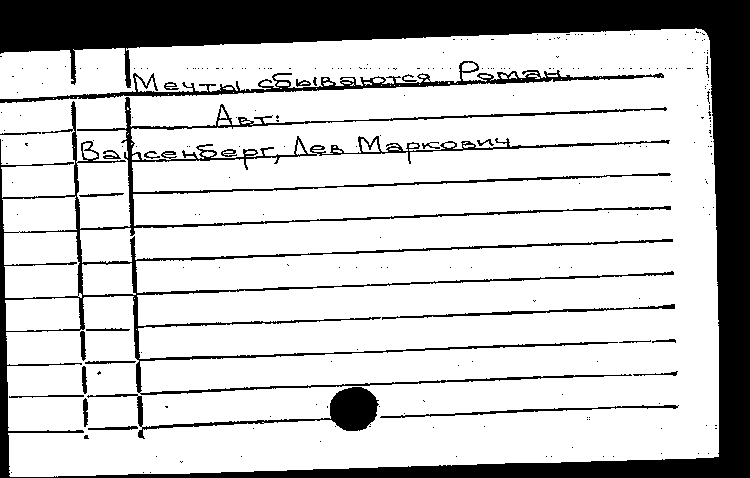 Мечты сбываются. Роман.
Авт:
Вайсенберг, Лев Маркович.